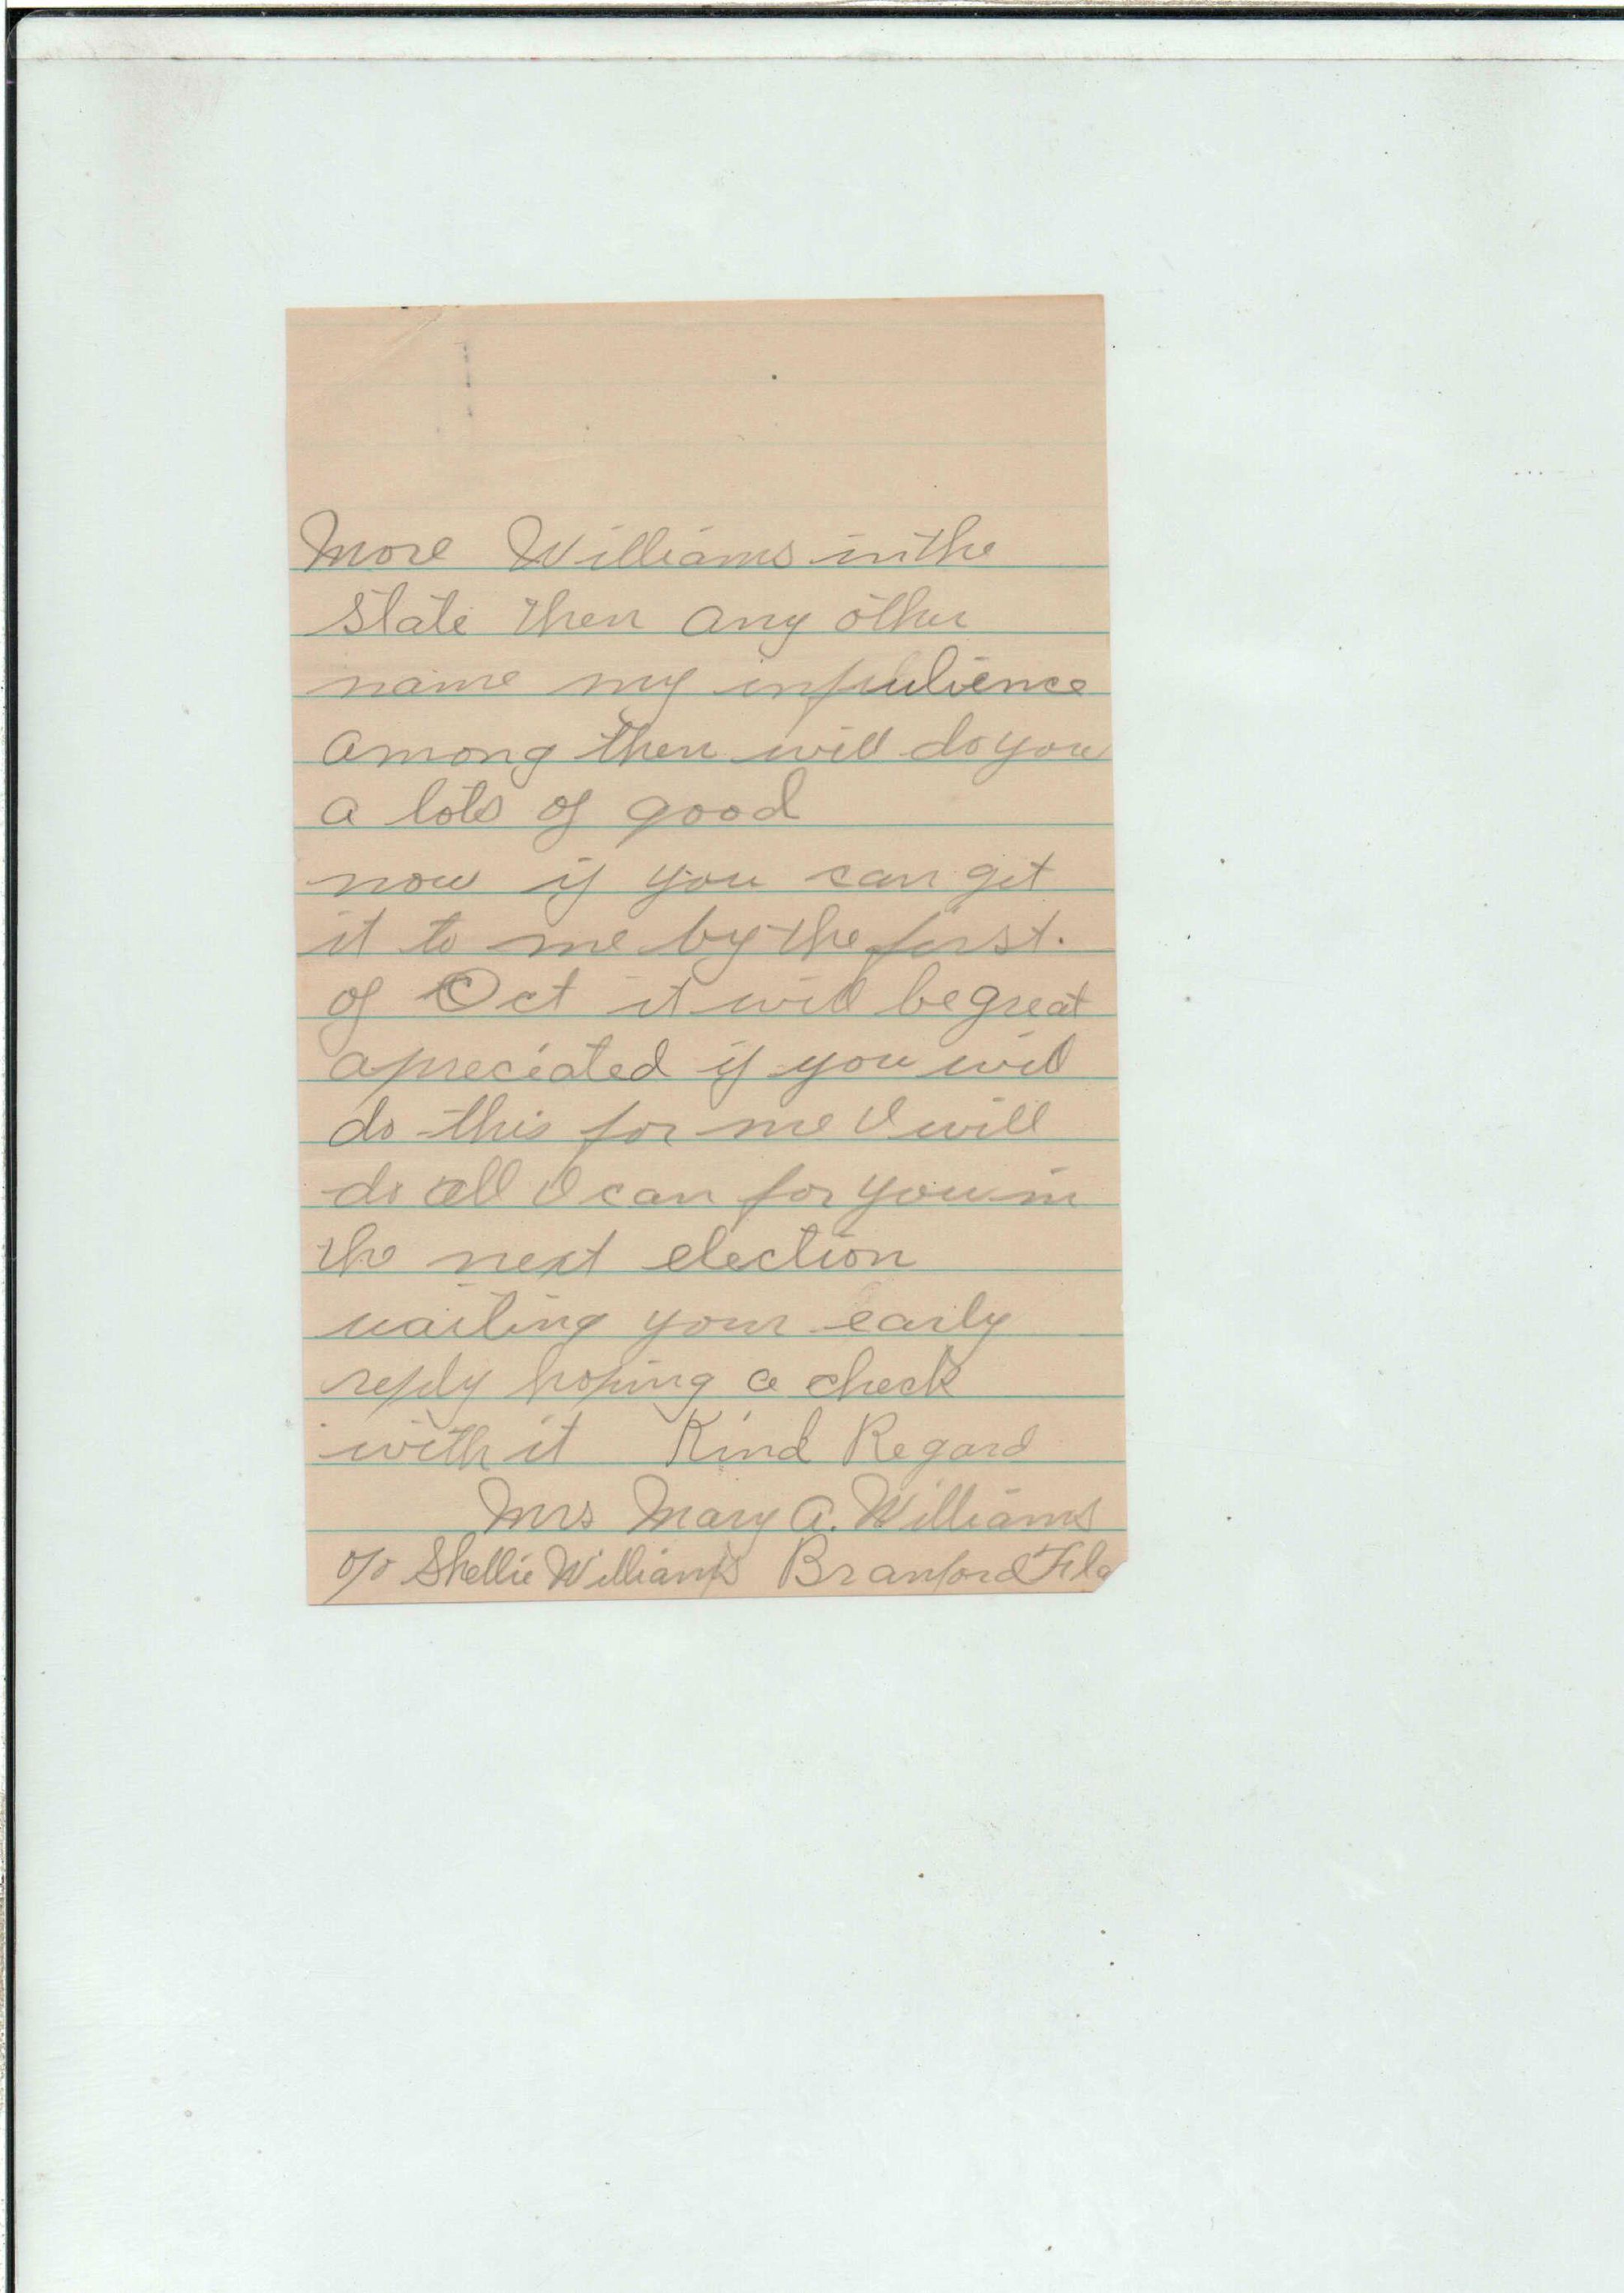 More Williams in the
State then any other
name my infulience
among then will do you
a lots of good
now if you can get
it to me by the first.
of Oct it will be great
apreciated if you will
do this for me I will
do all I can for you in
the next election
waiting your early
reply hoping a check
with it Kind Regard
Mrs Mary A. Williams
c/o Shellie Williams Branford Fla